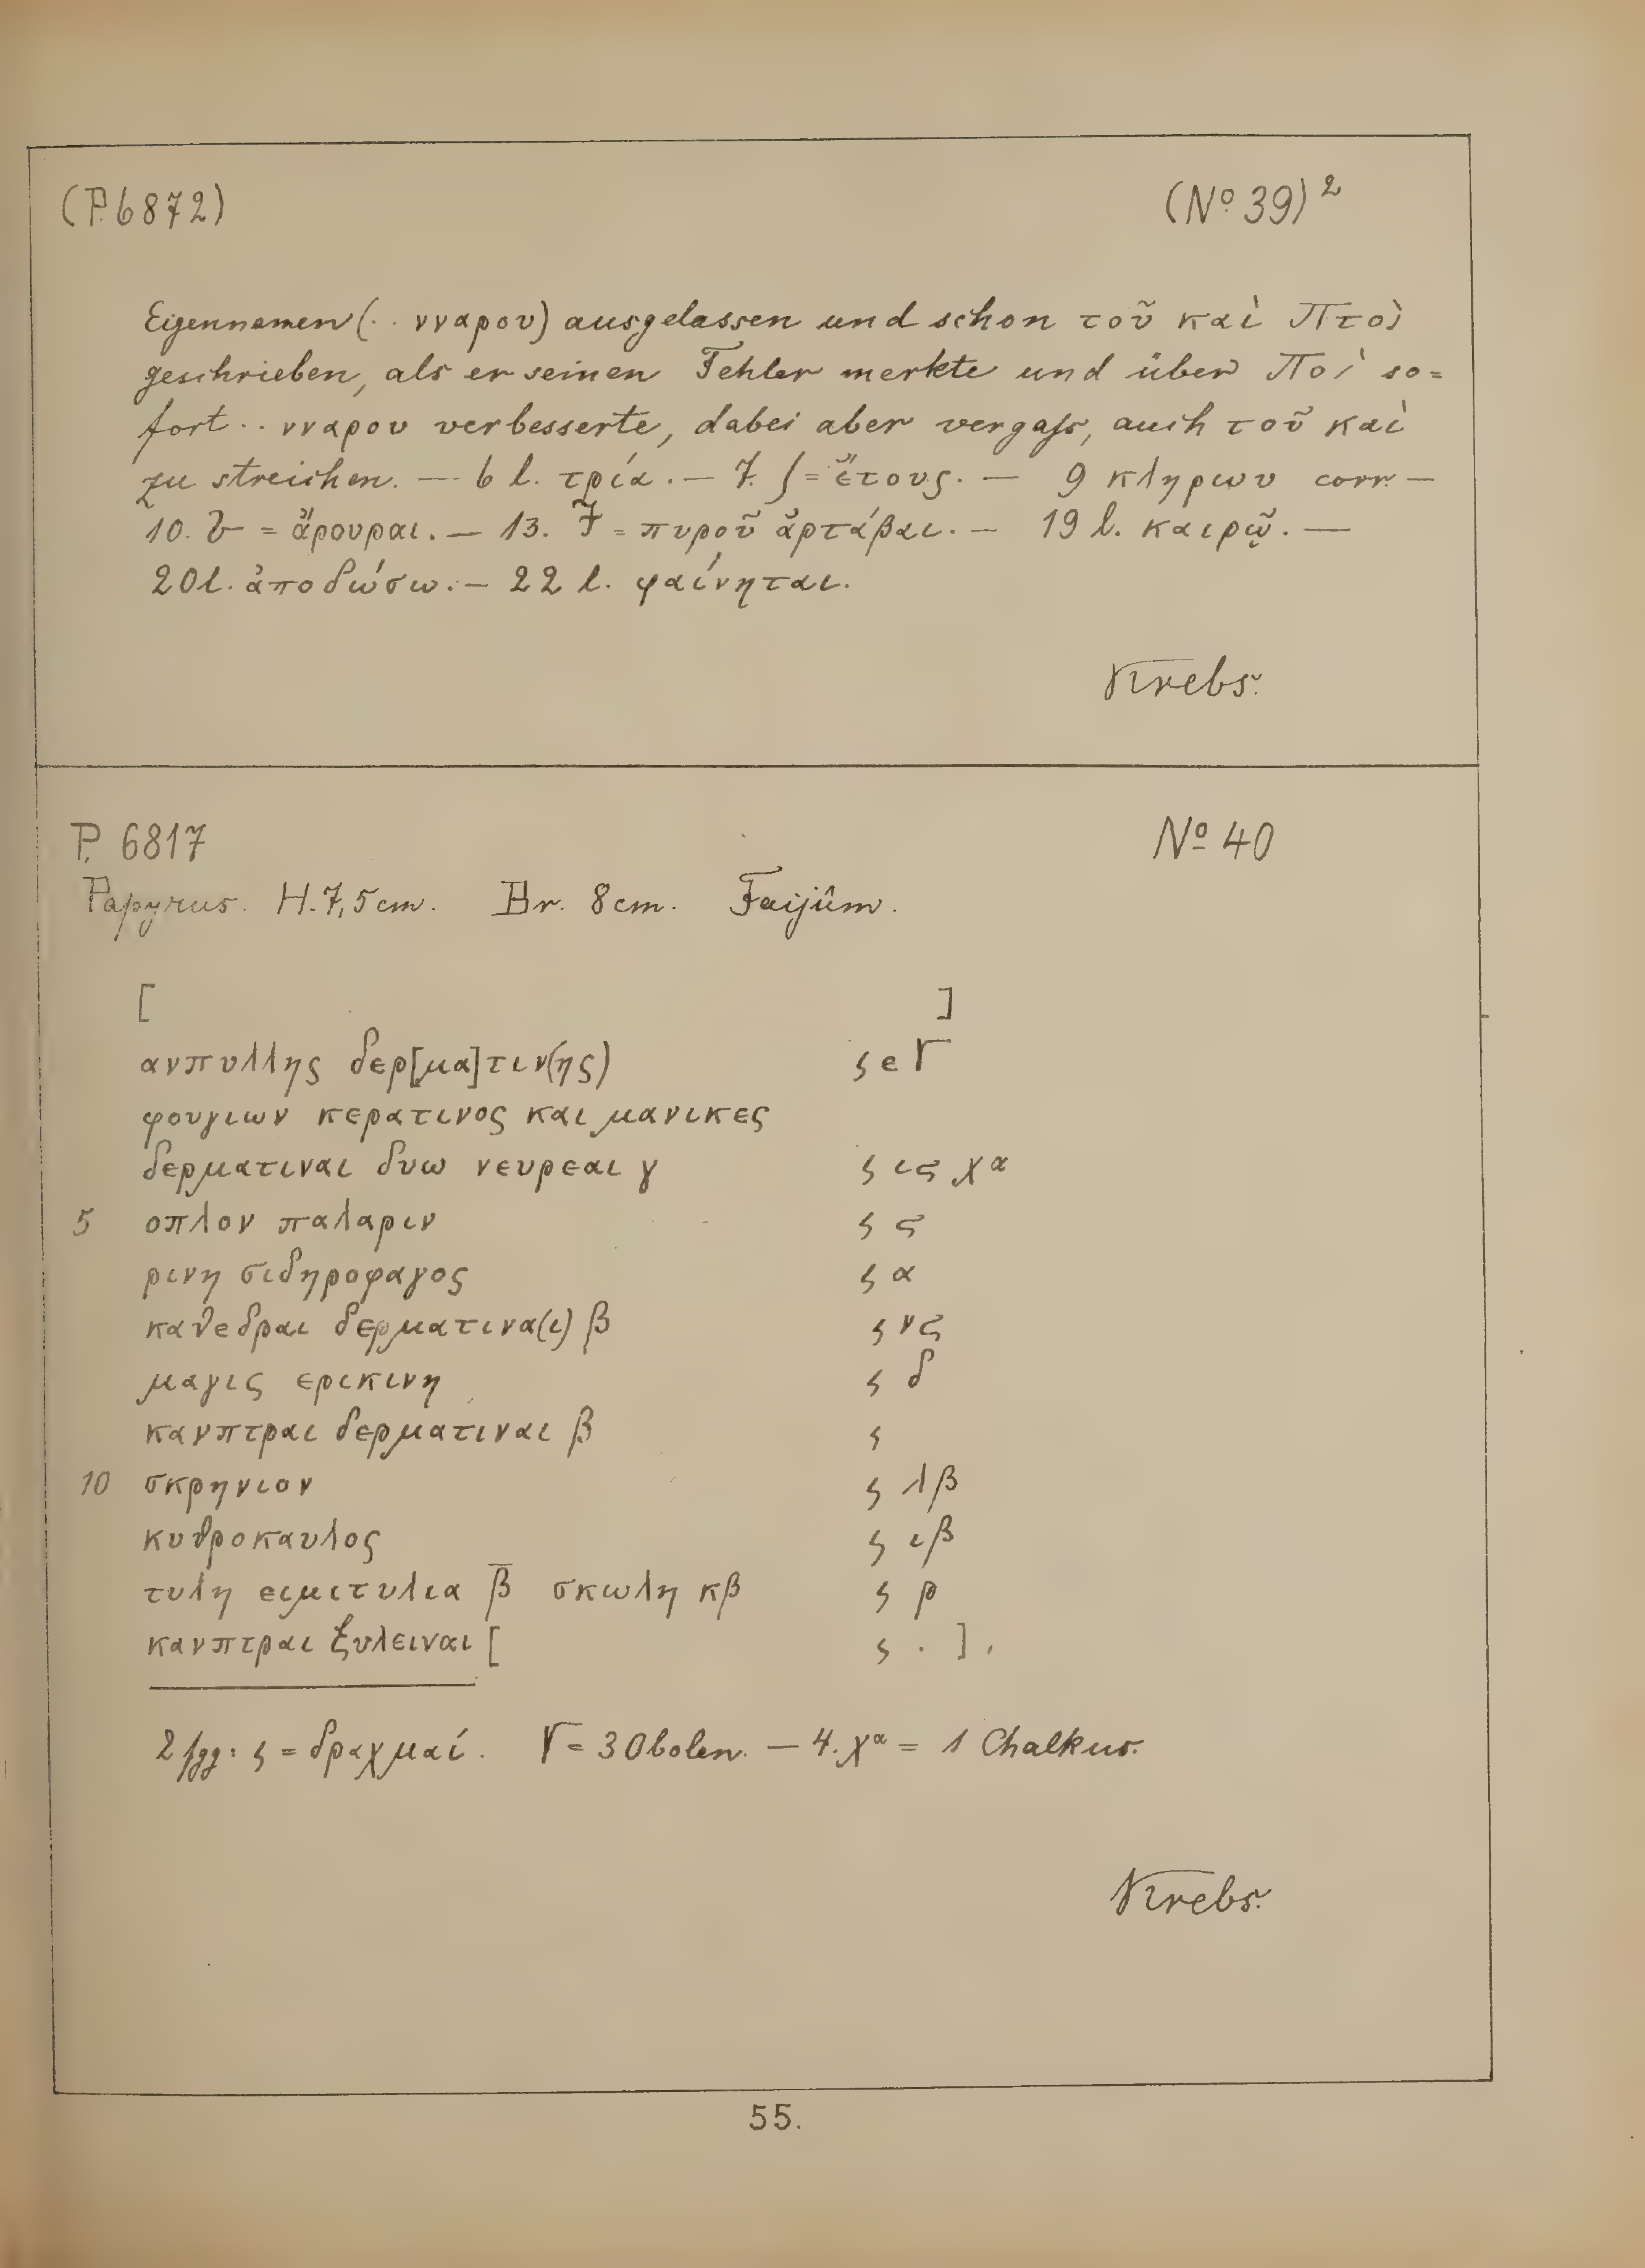 (P. 6872) (Nº 39)²
Eigennamen (. . νναρου) ausgelassen und schon τοῦ καὶ Πτοὶ
geschrieben, als er seinen Fehler merkte und über Ποὶ so=
fort . . νναρου verbesserte, dabei aber vergass, auch τοῦ καὶ
zu streichen. — 6 l. τρία. — 7. ʃ = ἔτους. — 9 κληρων corr. —
10. = ἄρουραι. — 13. = πυροῦ ἀρτάβαι. — 19 l. καιρῷ. —
20 l. ἀποδώσω. — 22 l. φαίνηται.
Krebs.
P. 6817 Nº 40
Papyrus. H. 7,5 cm. Br. 8 cm. Faijûm.
[ ]
ανπυλλης δερ[μα]τιν(ης) ς ε Γ
φουγιων κερατινος και μανικες
δερματιναι δυω νευρεαι γ ς ις χᵅ
5 οπλον παλαριν ς ς
ρινη σιδηροφαγος ς α
καθεδραι δερματινα(ι) β ς νς
μαγις ερικινη ς δ
κανπτραι δερματιναι β ς
10 σκρηνιον ς λβ
κυθροκαυλος ς ιβ
τυλη ειμιτυλια β̅ σκωλη κβ ς ρ
κανπτραι ξυλειναι [ ς . ] .
2 fgg: ς = δραχμαί. Γ = 3 Obolen. — 4. χᵅ = 1 Chalkus.
Krebs.
55.